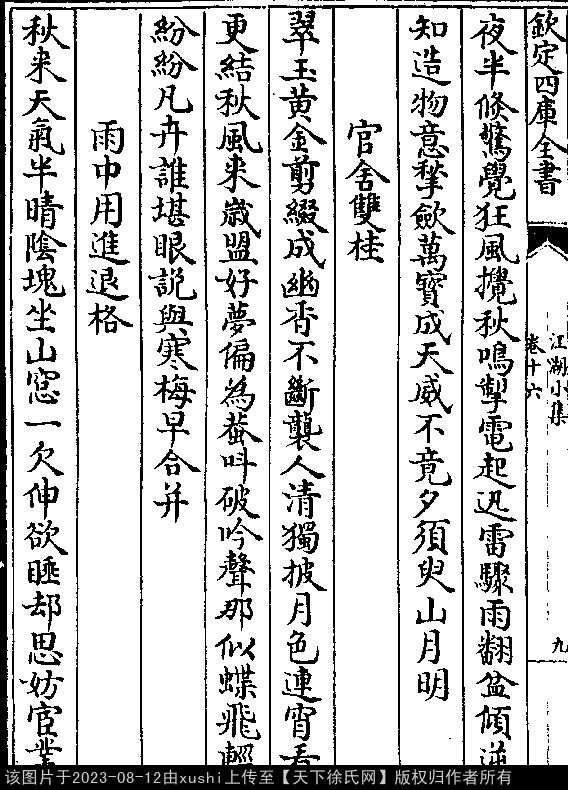 欽定四庫全書
江湖小集
卷十六
九
夜半倐驚覺狂風攪秋鳴掣電起迅雷驟雨翻盆傾
知造物意揫歛萬寳成天威不竟夕須臾山月明
官舍雙桂
翠玉黄金剪綴成幽香不斷襲人清獨披月色連宵看
更結秋風来嵗盟好夢偏為蛩呌破吟聲那似蝶飛輕
紛紛凡卉誰堪眼説與寒梅早合并
雨中用進退格
秋来天氣半晴陰塊坐山窓一欠伸欲睡却思妨宦業
该图片于2023-08-12由xushi上传至【天下徐氏网】版权归作者所有